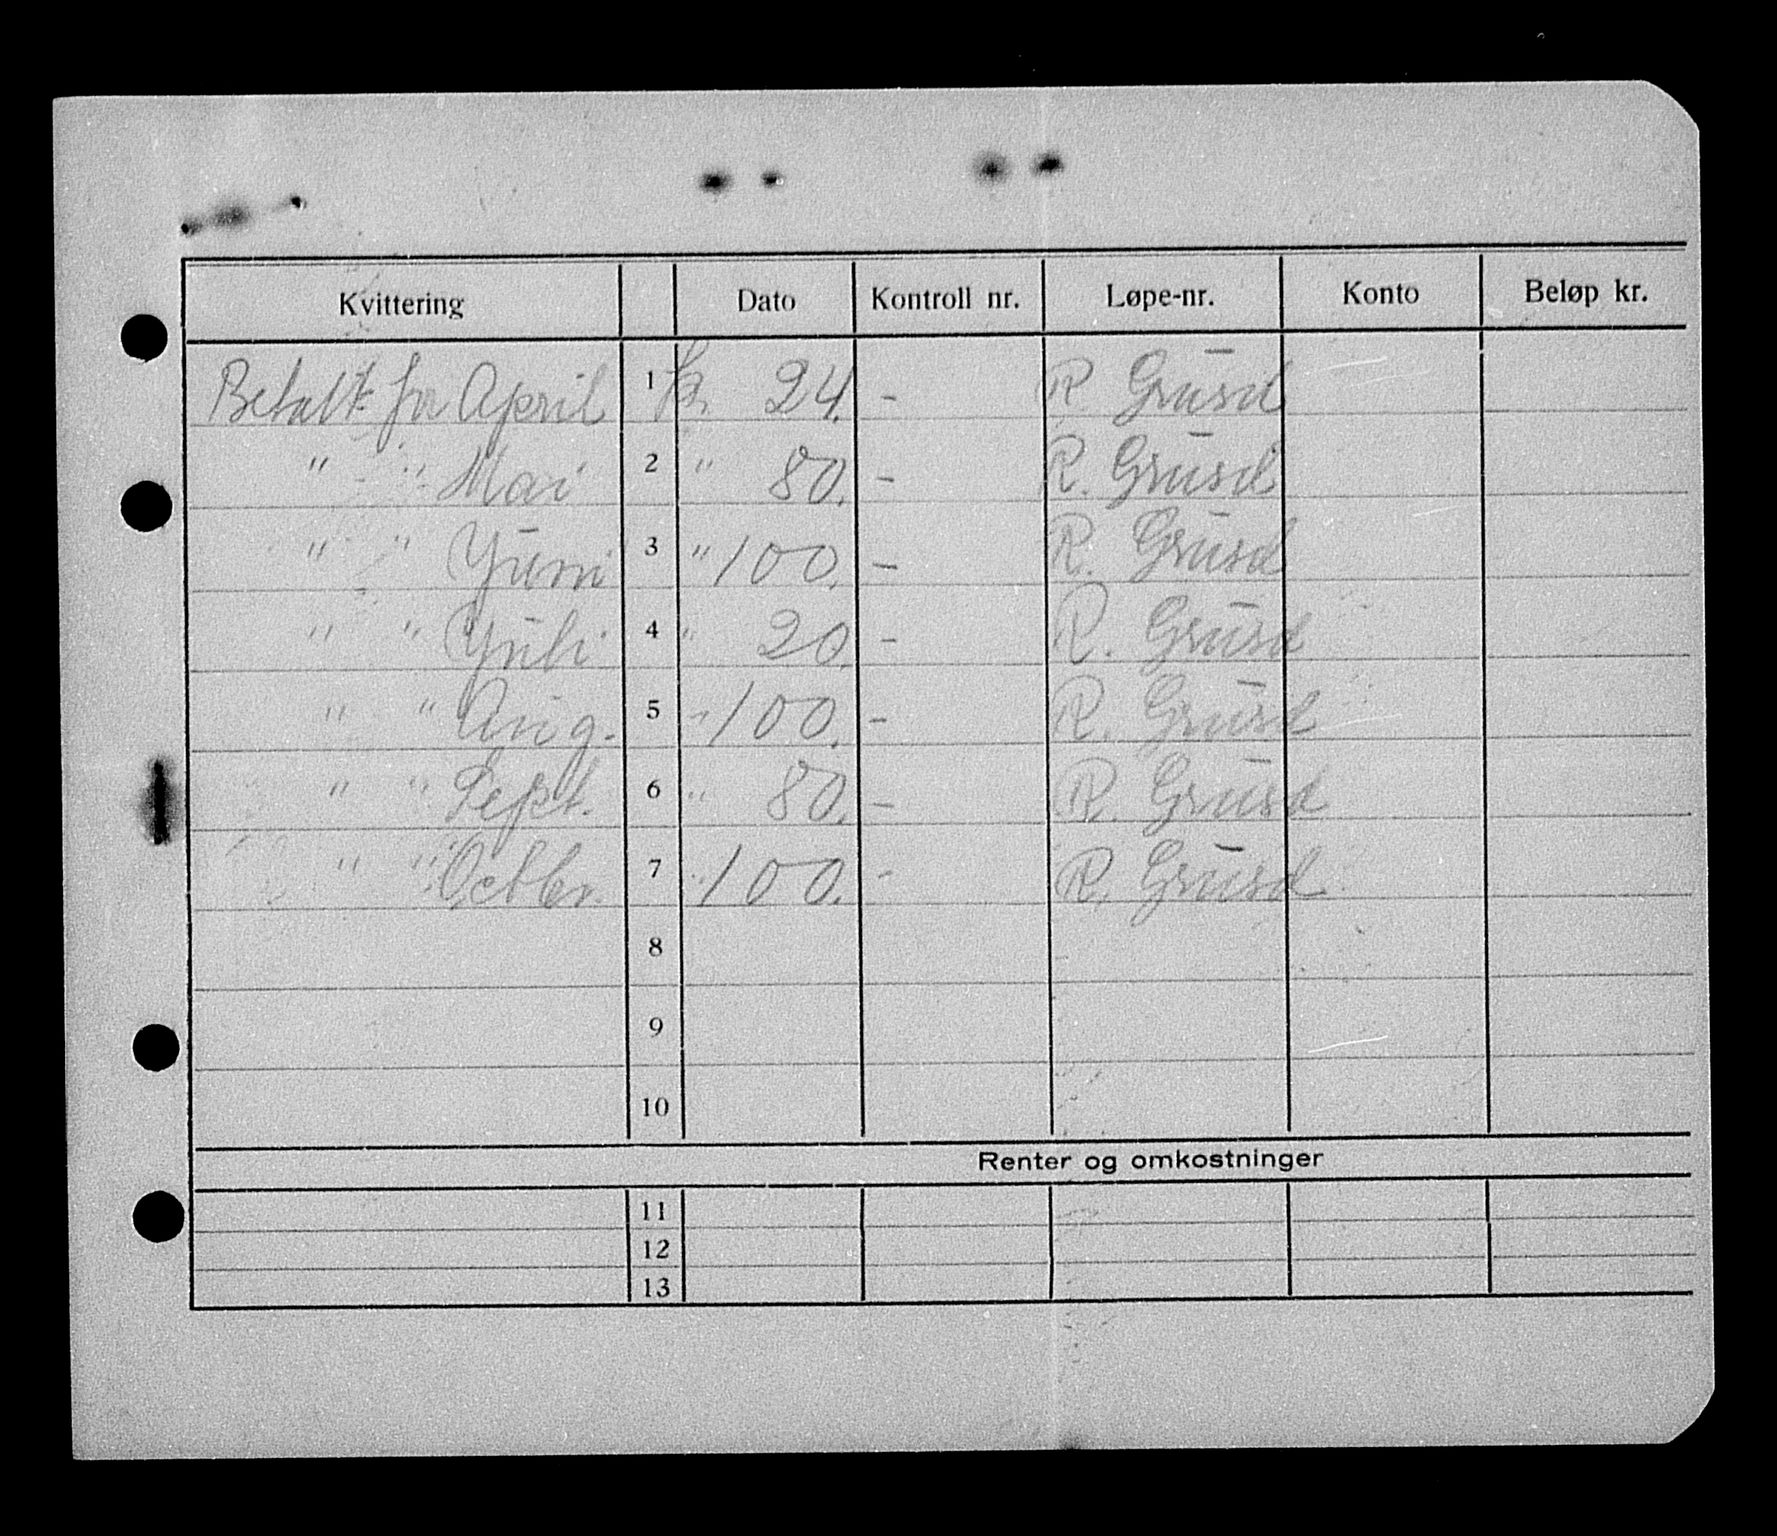 Kvittering Dato Kontroll nr. Løpe-nr. Konto Beløp kr.
Betalt for April 1 kr. 24. - R. Grusd
" " Mai 2 " 80. - R. Grusd
" " Yuni 3 " 100. - R. Grusd
" " Yuli 4 " 20. - R. Grusd
" " Aug. 5 " 100. - R. Grusd
" " Sept. 6 " 80. - R. Grusd
" " Octbr. 7 " 100. - R. Grusd
8
9
10
Renter og omkostninger
11
12
13